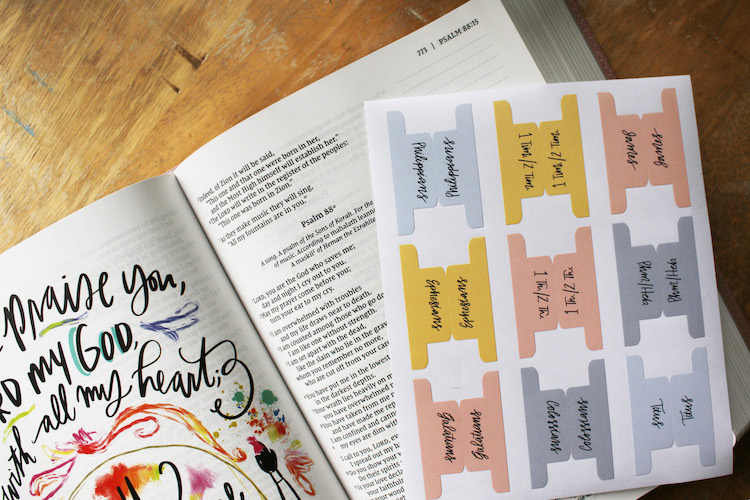 773 | PSALM 88:15
Indeed, of Zion it will be said,
"This one and that one were born in her,
and the Most High himself will establish her."
The LORD will write in the register of the peoples:
"This one was born in Zion."
As they make music they will sing,
"All my fountains are in you."
Psalm 88
A song. A psalm of the Sons of Korah. For the
of music. According to mahalath leannoth
A maskil of Heman the Ezrahite
LORD, you are the God who saves me;
day and night I cry out to you.
May my prayer come before you;
turn your ear to my cry.
I am overwhelmed with troubles
and my life draws near to death.
I am counted among those who go do
I am like one without strength.
I am set apart with the dead,
like the slain who lie in the grave
whom you remember no more,
who are cut off from your car
You have put me in the lowest
in the darkest depths.
Your wrath lies heavily on m
you have overwhelmed
You have taken from
and have made me
I am confined and cannot
my eyes are dim wit
I call to you, LORD, ever
I spread out my
Do you show your
Do their spirits
praise You,
my GOD,
with all my heart;
Philippians
Philippians
1 Tim./2 Tim.
1 Tim./2 Tim.
James
James
Ephesians
Ephesians
1 Th./2 Th.
1 Th./2 Th.
Phlm./Heb.
Phlm./Heb.
Galatians
Galatians
Colossians
Colossians
Titus
Titus